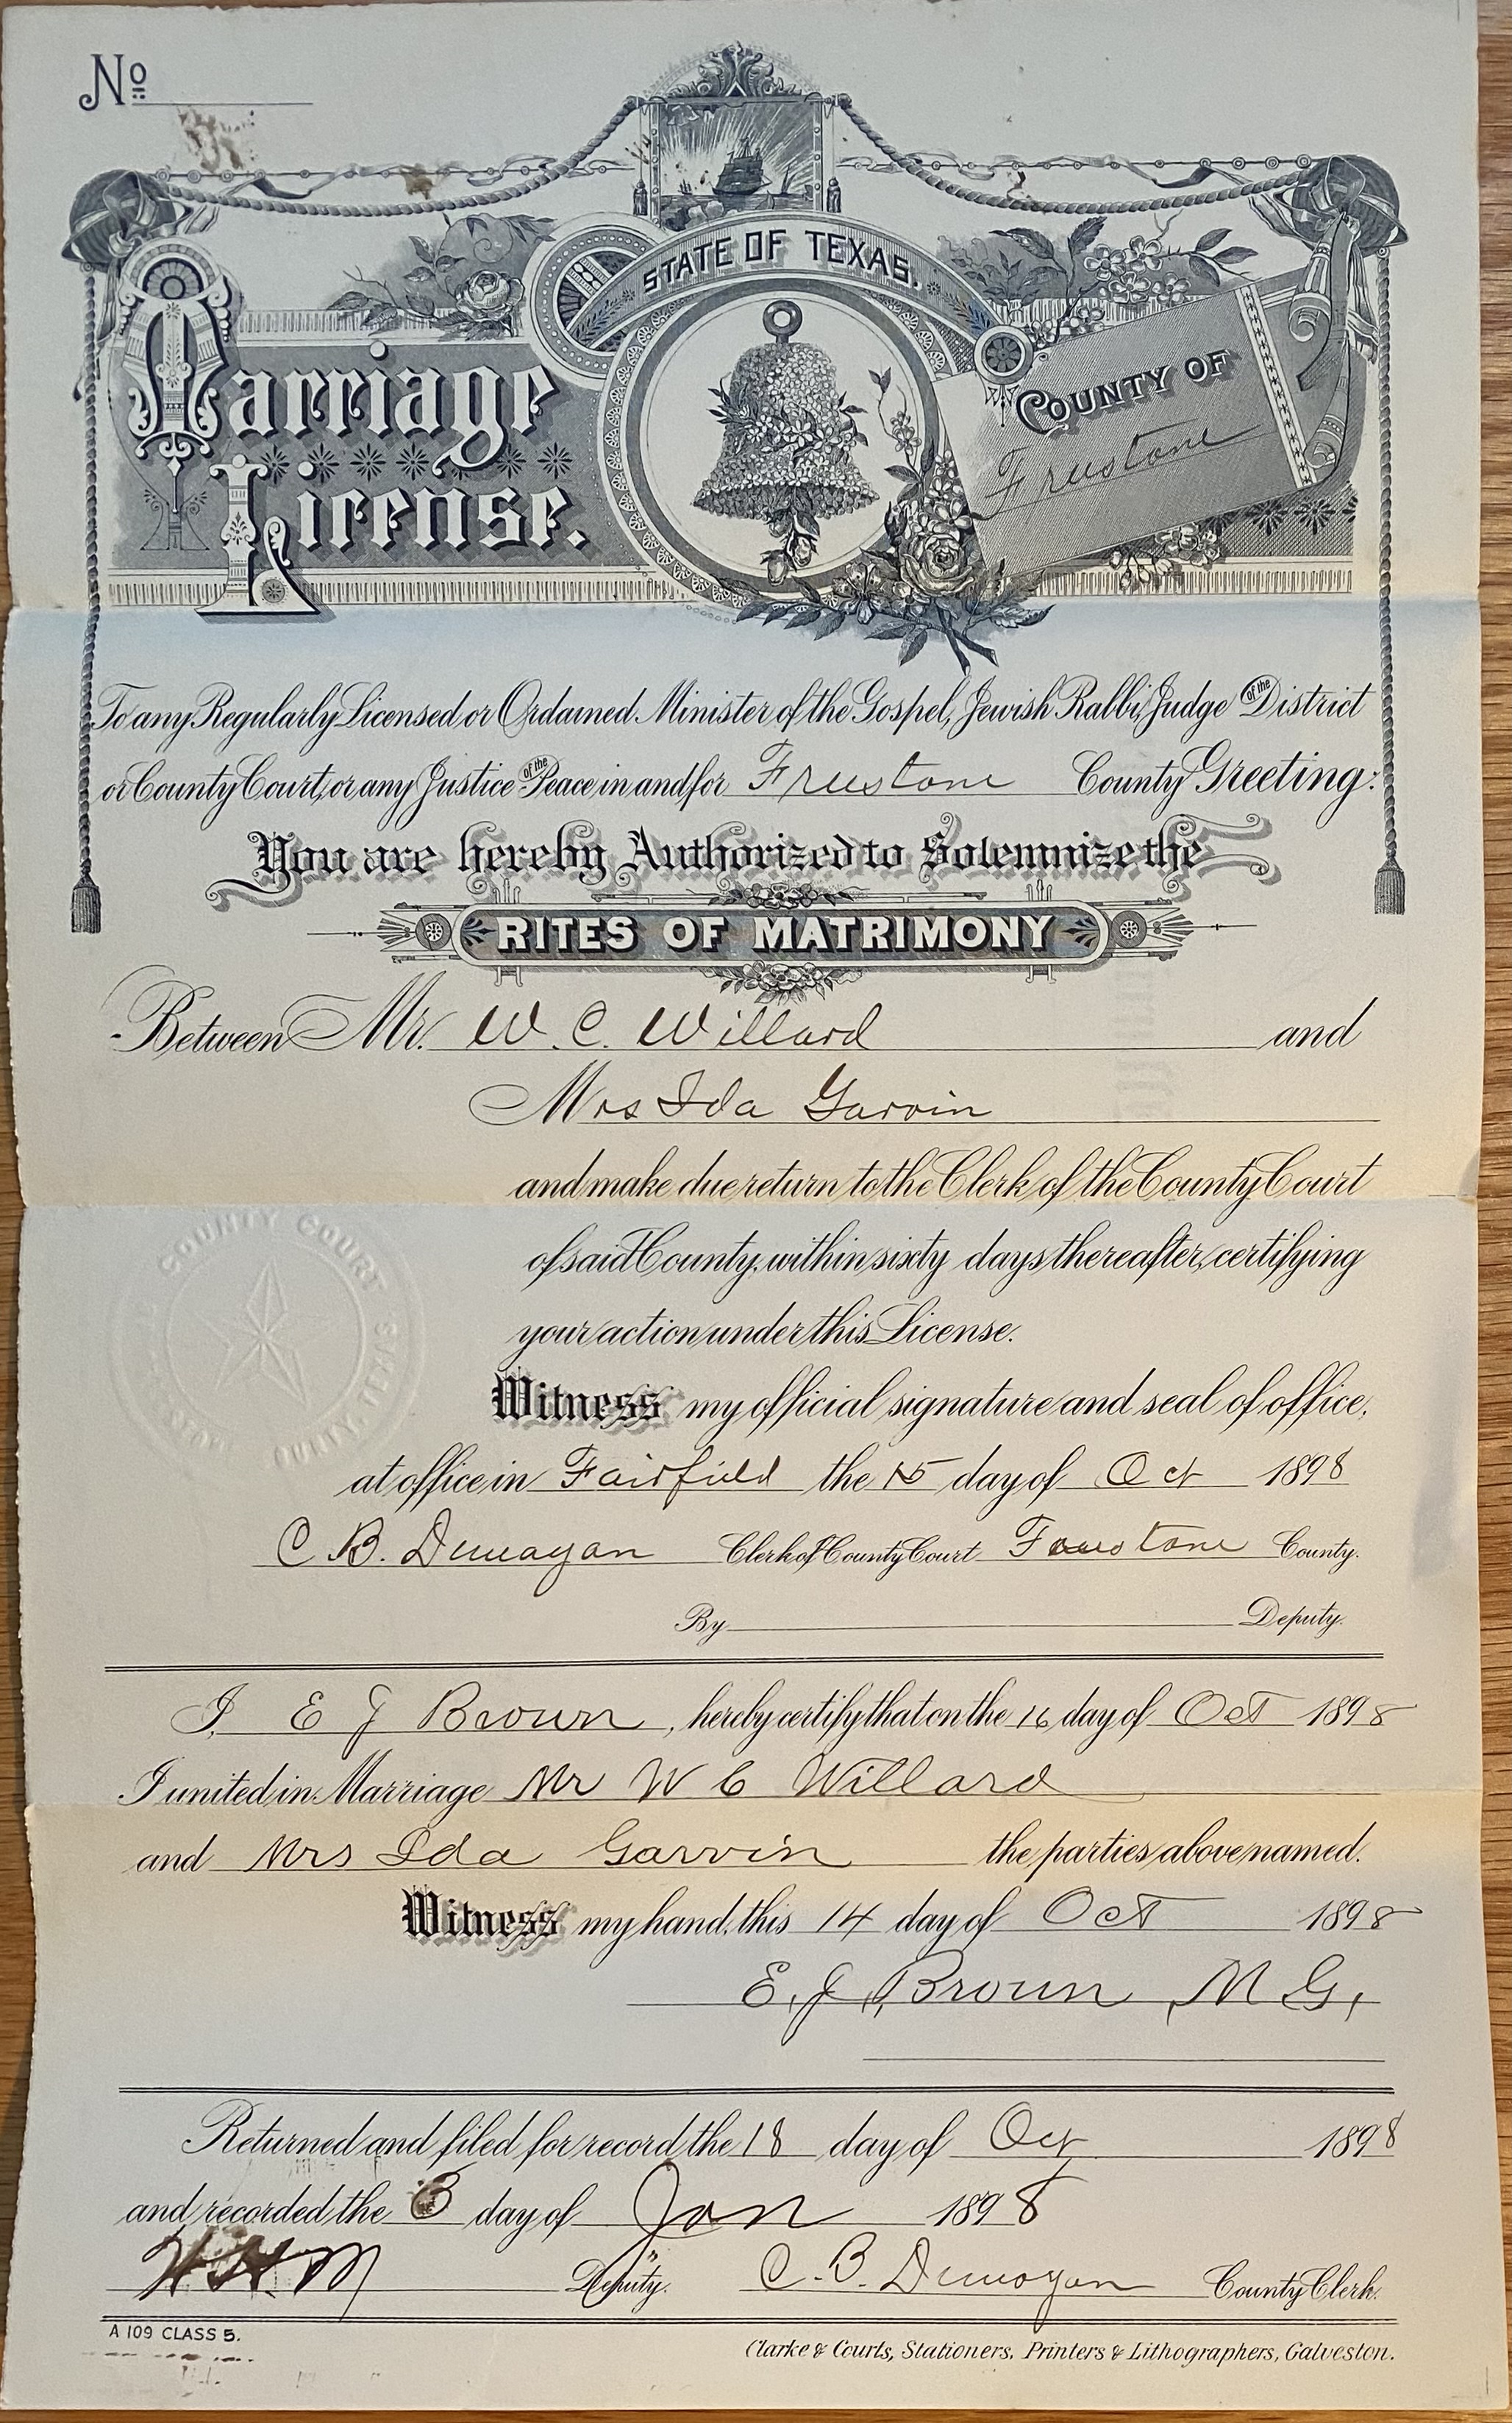 No
STATE OF TEXAS.
Marriage
License.
COUNTY OF
Freestone
To any Regularly Licensed or Ordained Minister of the Gospel, Jewish Rabbi, Judge of the District
or County Court, or any Justice of the Peace in and for Freestone County Greeting:
You are hereby Authorized to Solemnize the
RITES OF MATRIMONY
Between Mr. W. C. Willard and
Mrs Ida Garvin
and make due return to the Clerk of the County Court
of said County, within sixty days thereafter, certifying
your action under this License.
COUNTY COURT
Witness my official signature and seal of office,
at office in Fairfield the 15 day of Oct 1898
C. B. Dunagan Clerk of County Court Freestone County.
By Deputy.
I, E J Brown, hereby certify that on the 16 day of Oct 1898
I united in Marriage Mr W C Willard
and Mrs Ida Garvin the parties above named.
Witness my hand, this 14 day of Oct 1898
E. J. Brown, M. G.,
Returned and filed for record the 18 day of Oct 1898
and recorded the 3 day of Jan 1898
Deputy. C. B. Dunagan County Clerk.
A 109 CLASS 5.
Clarke & Courts, Stationers, Printers & Lithographers, Galveston.